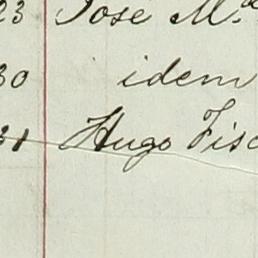 23 José M.a
30 idem
31 Hugo Fisc